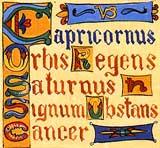 VS
Capricornus
Orbis Regens
Saturnus
Signum Obstans
Cancer